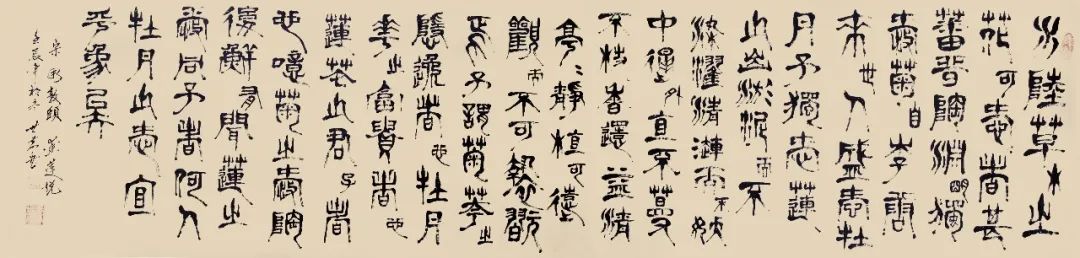 水陸草木之
花可愛者甚
蕃晉陶淵明獨
愛菊自李唐
来世人盛愛牡
丹予獨愛蓮
之出淤泥而不
染濯清漣而不妖
中通外直不蔓
不枝香遠益清
亭〻静植可遠
觀而不可褻翫
焉予謂菊華之
隱逸者也牡丹
華之富貴者也
蓮花之君子者
也噫菊之愛陶
後鮮有聞蓮之
愛同予者何人
牡丹之愛宜
乎衆矣
宋周敦頤愛蓮説
壬辰年於京